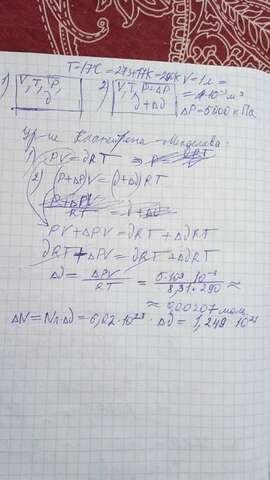 T=17°C = 273+17K = 290K V=1л =
1) V, T, P, ∂ 2) V, T, P+ΔP ∂+Δ∂ = 10⁻³ м³
ΔP=5000 кПа
Ур-ие Клапейрона-Менделеева:
1) PV=∂RT ⇒ P
2) (P+ΔP)V=(∂+Δ∂)RT
PV+ΔPV = ∂RT+Δ∂RT
∂RT+ΔPV = ∂RT+Δ∂RT
Δ∂ = ΔPV/RT = 5·10³·10⁻³/8,31·290 ≈
≈ 0,00207 моль
ΔN=Nл·Δ∂=6,02·10²³·Δ∂=1,249·10²¹